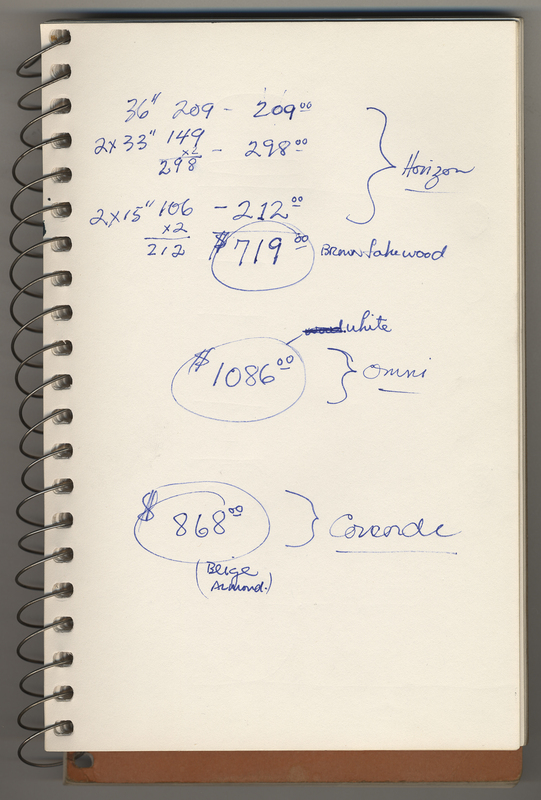 36" 209 - 209 00
2x33" 149 - 298 00
x2
298
Horizon
2x15" 106 - 212 00
x2
212
$719 00
Brown Lakewood
white
$1086 00
Omni
$868 00
(Beige
Almond.)